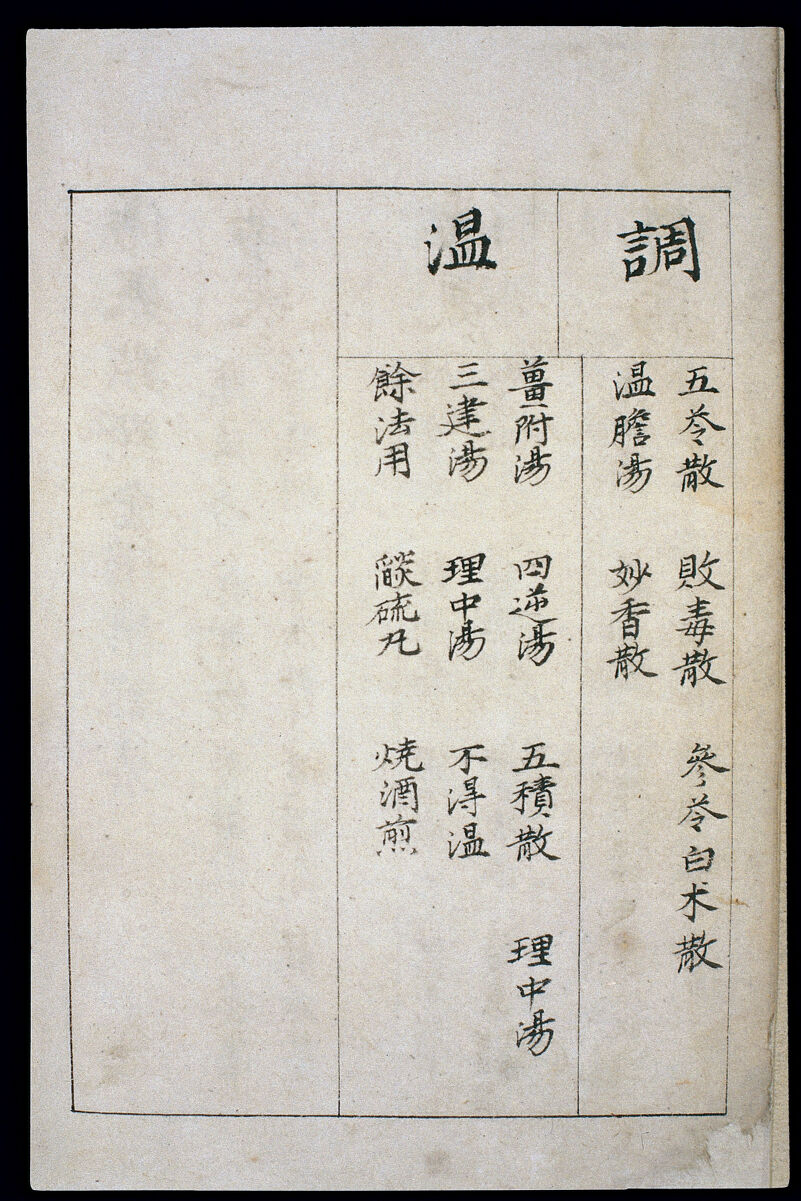 調
五苓散 敗毒散 參苓白术散
温膽湯 妙香散
温
薑附湯 四逆湯 五積散 理中湯
三建湯 理中湯 不得温
餘法用 硫丸 燒酒煎